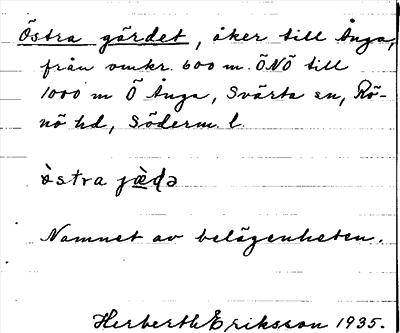 Östra gärdet, åker till Ånga,
från omkr. 600 m. ÖNÖ till
1000 m Ö Ånga, Svärta sn, Rö-
nö hd, Söderm. l.
östra jæ̀ḍə
Namnet av belägenheten.
Herberth Eriksson 1935.